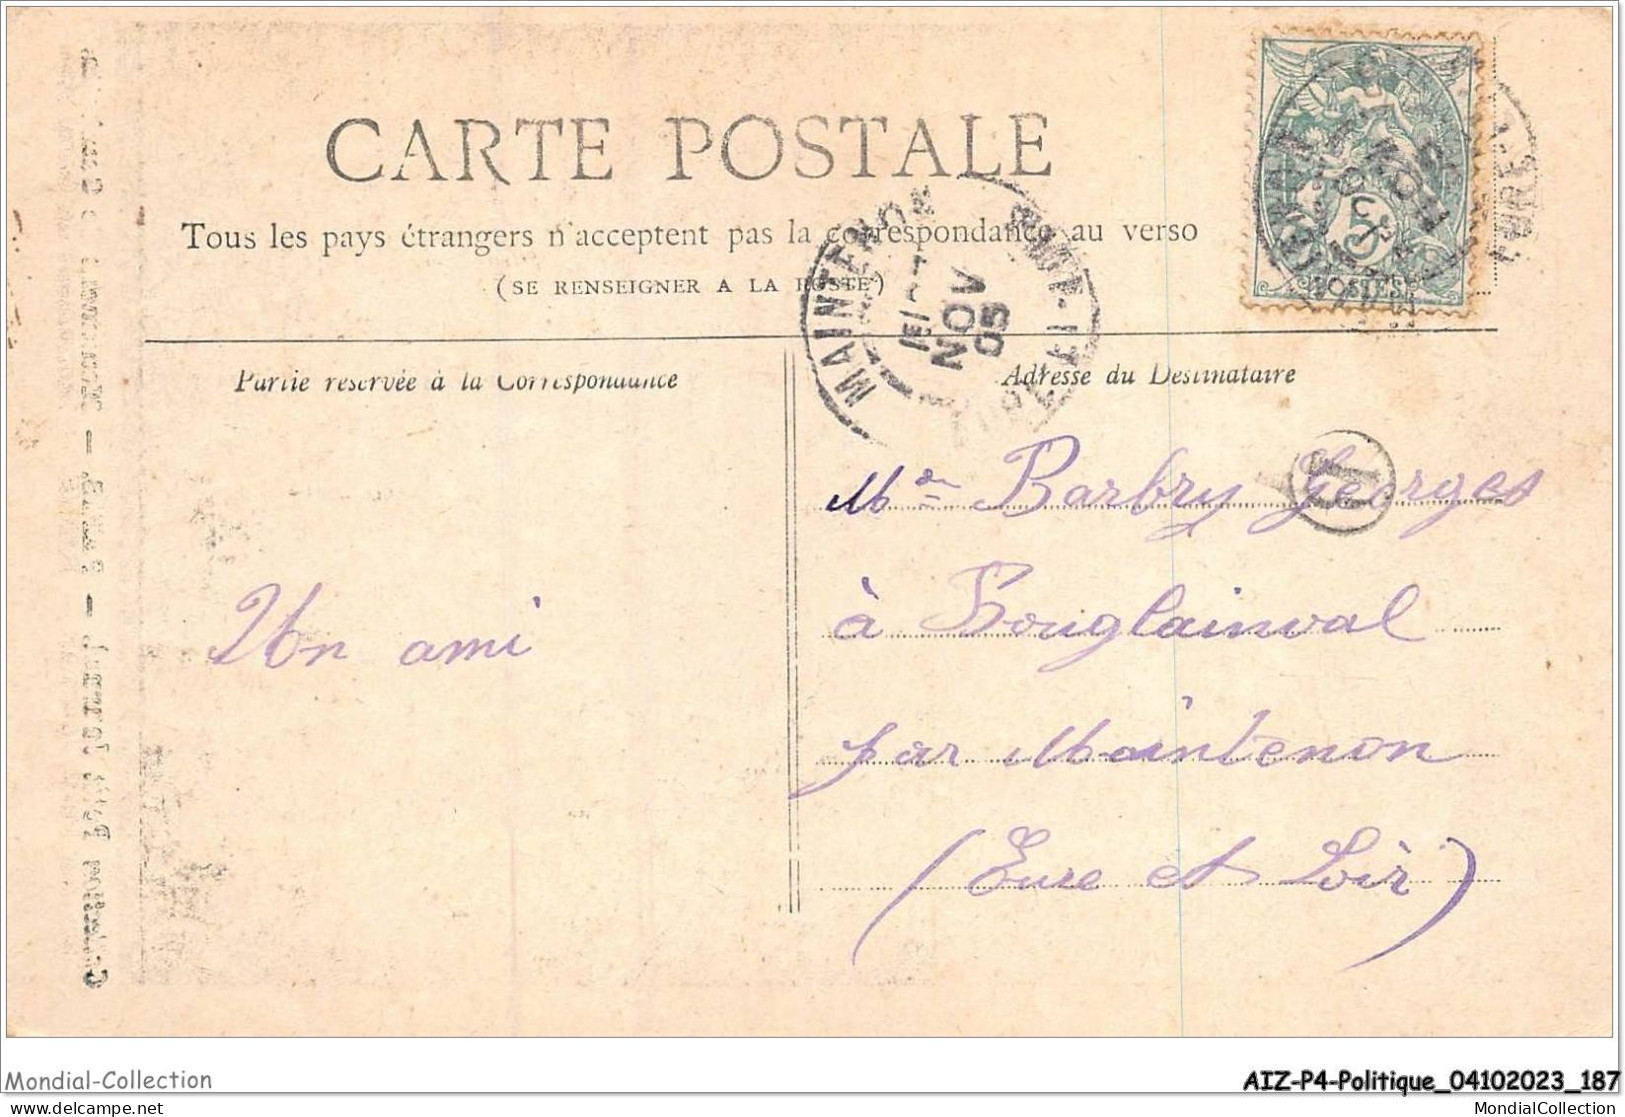 CARTE POSTALE
Tous les pays étrangers n'acceptent pas la correspondance au verso
(SE RENSEIGNER A LA POSTE)
MAINTENON
NOV
05
POSTES
Partie réservée à la Correspondance
Adresse du Destinataire
Mr Barbry Georges
à Bouglainval
par Maintenon
(Eure et Loir)
Un ami
Mondial-Collection
AIZ-P4-Politique_04102023_187
www.delcampe.net
MondialCollection